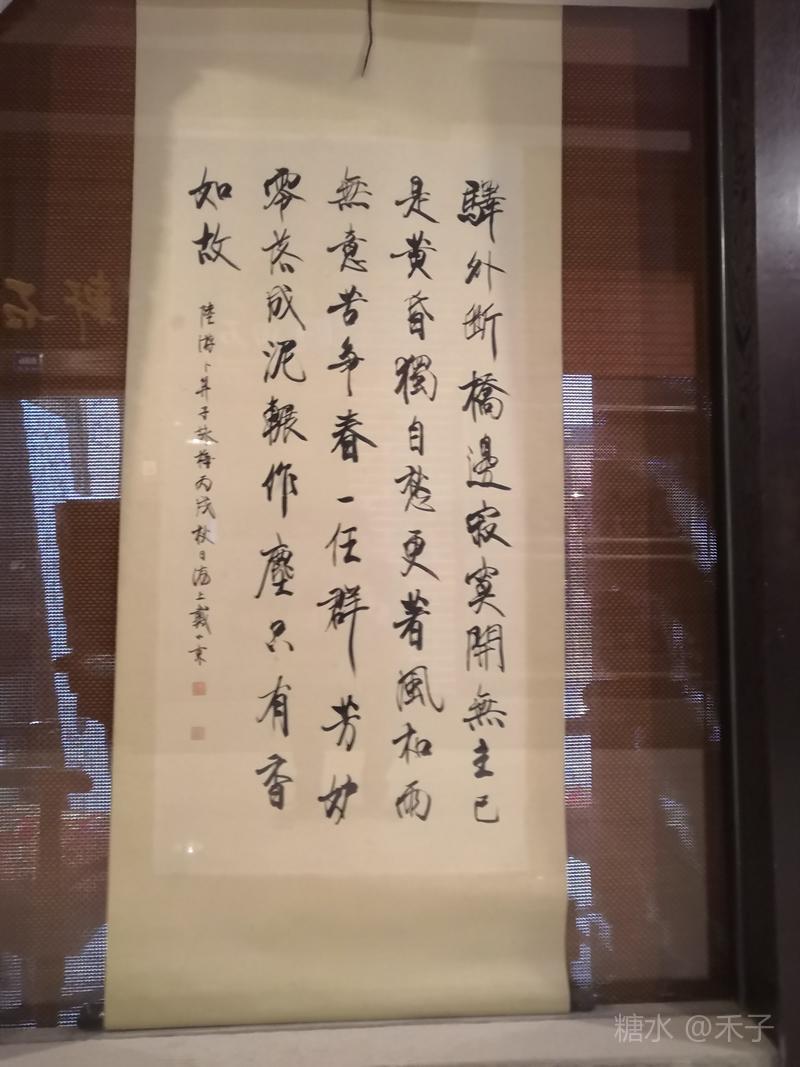 驛外斷橋邊寂寞開無主已
是黄昏獨自愁更著風和雨
無意苦争春一任群芳妒
零落成泥輾作塵只有香
如故
陸游卜算子詠梅丙戌秋日海上戴小京
軒石
糖水 @禾子